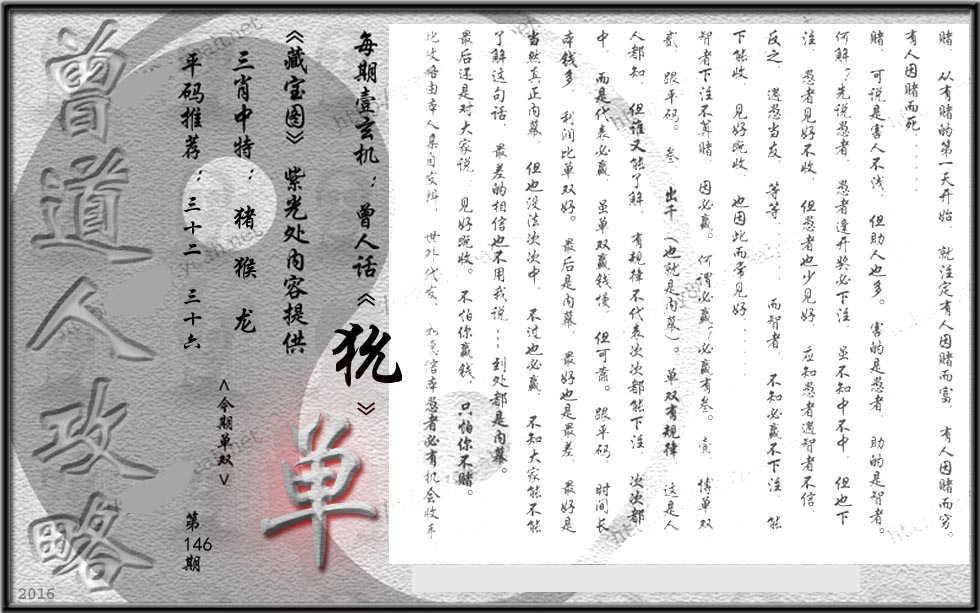 赌，从有赌的第一天开始，就注定有人因赌而富，有人因赌而穷。
有人因赌而死......
赌，可说是害人不浅，但助人也多。害的是愚者，助的是智者。
何解？先说愚者，愚者逢开奖必下注，虽不知中不中，但也下
注，愚者见好不收，但愚者也少见好，应知愚者遇智者不信，
反之，遇愚当友，等等......而智者，不知必赢不下注，能
下能收，见好既收，也因此而常见好......
智者下注不算赌，因必赢。何谓必赢？必赢有叁。壹 博单双
贰 跟平码。叁 出千（也就是内幕）。单双有规律 这是人
人都知，但谁又能了解，有规律不代表次次都能下注，次次都
中，而是代表必赢，虽单双赢钱慢，但可靠。跟平码，时间长
本钱多，利润比单双好。最后是内幕，最好也是最差，最好是
当然真正内幕，但也没法次次中，不过也必赢，不知大家能不能
了解这句话，最差的相信也不用我说---到处都是内幕。
最后还是对大家说，见好既收。不怕你赢钱，只怕你不赌。
此攻略由本人集自安辑，世外代发，如愿信本愚者必有机会收丰
每期壹玄机：曾人话《犹》
《藏宝图》紫光处内容提供
三肖中特：猪 猴 龙
平码推荐：三十二 三十六
<今期单双>
单
第146期
曾道人攻略
2016